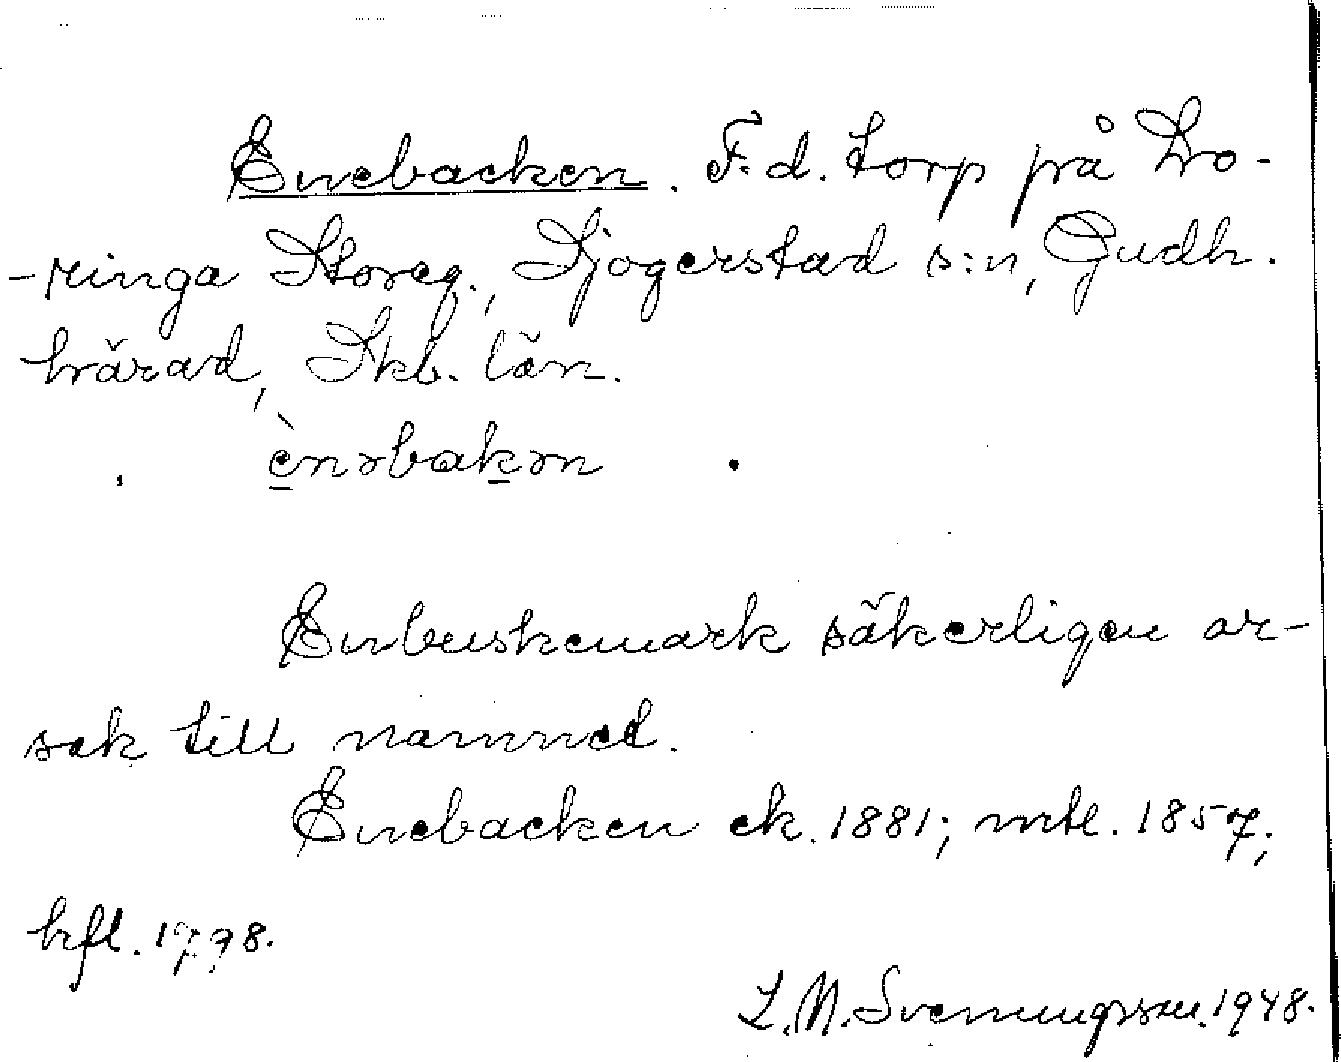 Enebacken. F.d. torp på Lo-
-ringa Storeg., Sjogerstad s:n, Gudh.
härad, Skb. län.
ènəbakən
Enbuskemark säkerligen or-
sak till namnet.
Enebacken ek. 1881; mtl. 1857;
hfl. 1798.
L.N. Svenungsson. 1948.